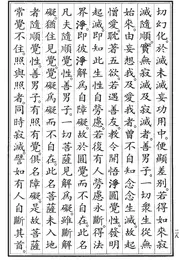 切幻化於滅未滅妄功用中便顯差別若得如來寂
滅隨順實無寂滅及寂滅者善男子一切眾生從無
始來由妄想我及愛我者曾不自知念念生滅故起
憎愛耽著五欲若遇善友教令開悟淨圓覺性發明
起滅即知此生性自勞慮若復有人勞慮永斷得法
界淨即彼淨解為自障礙故於圓覺而不自在此名
凡夫隨順覺性善男子一切菩薩見解為礙雖斷解
礙猶住見覺覺礙為礙而不自在此名菩薩未入地
者隨順覺性善男子有照有覺俱名障礙是故菩薩
常覺不住照與照者同時寂滅譬如有人自斷其首